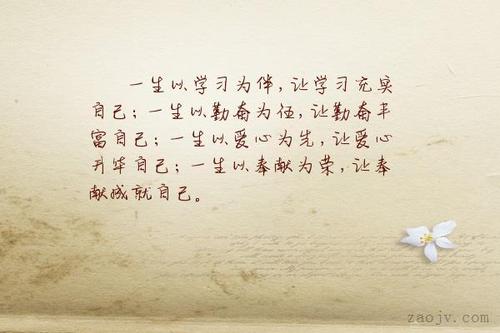 一生以学习为伴,让学习充实
自己;一生以勤奋为伍,让勤奋丰
富自己;一生以爱心为先,让爱心
升华自己;一生以奉献为荣,让奉
献成就自己。
zaojv.com